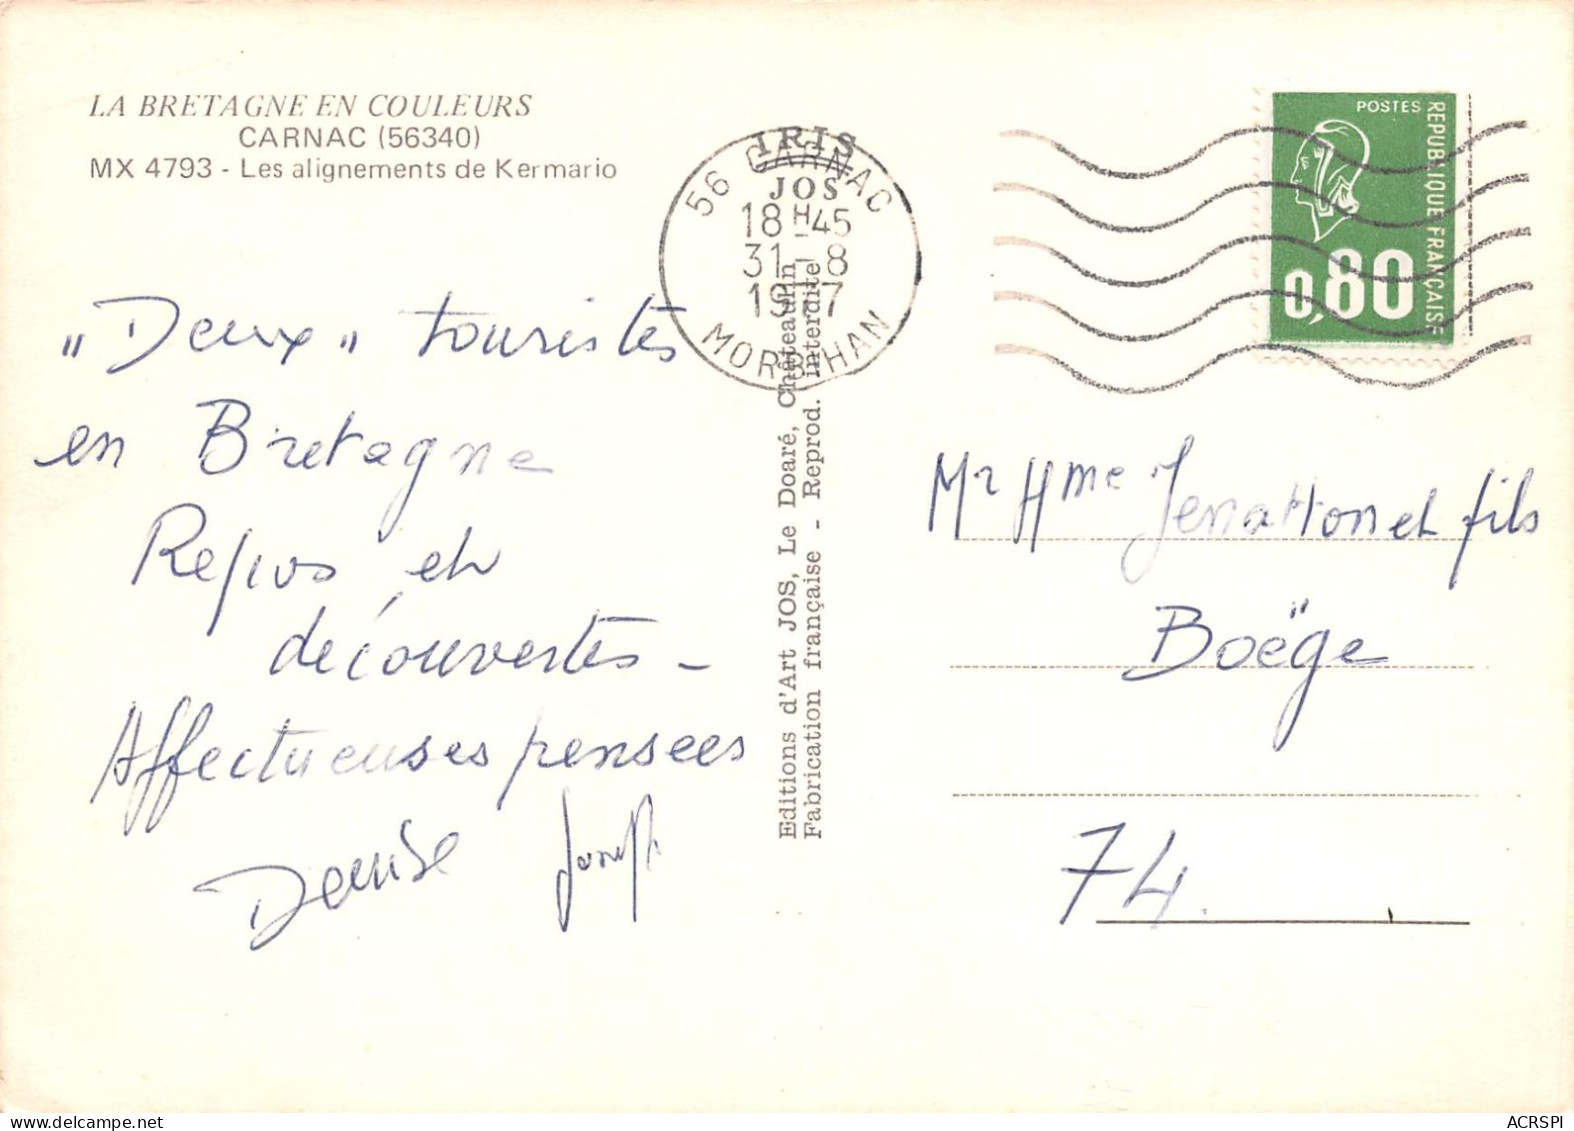 LA BRETAGNE EN COULEURS
CARNAC (56340)
MX 4793 - Les alignements de Kermario
"Deux" touristes
en Bretagne
Repos et
découvertes -
Affectueuses pensees
Denise Joseph
IRIS
JOS
56 CARNAC
18H45
31-8
1977
MORBIHAN
Editions d'Art JOS, Le Doaré, Châteaulin
Fabrication française - Reprod. interdite
POSTES
REPUBLIQUE FRANÇAISE
0,80
Mr Mme Jenatton et fils
Boëge
74.
ACRSPI